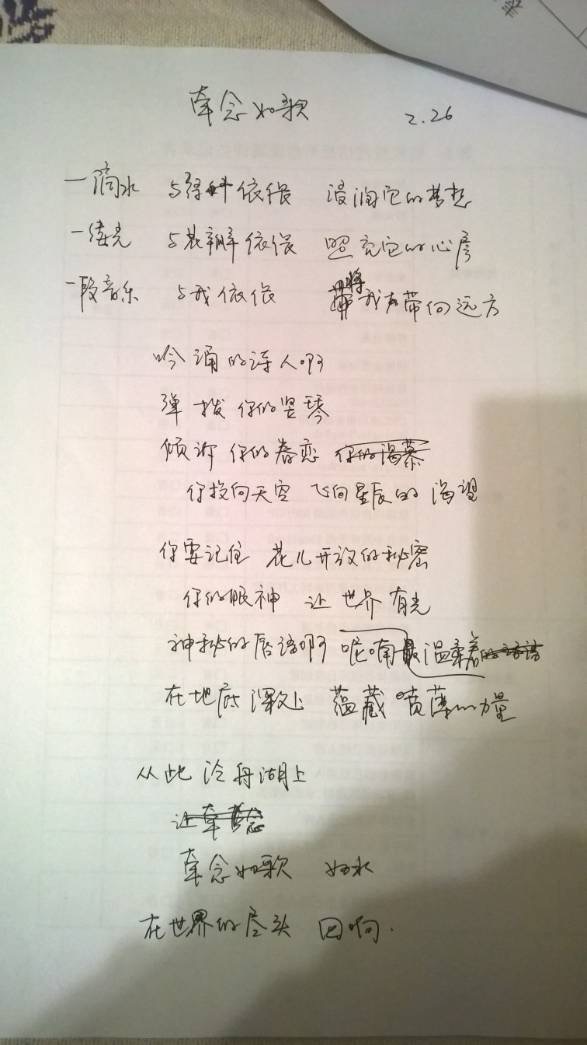 牵念如歌 2.26
一滴水 与绿叶依偎 浸润它的梦想
一缕光 与花瓣依偎 照亮它的心房
一段音乐 与我依偎 将我带向远方
吟诵的诗人啊
弹拨你的竖琴
倾诉你的眷恋 你的渴慕
你投向天空 飞向星辰的渴望
你要记住 花儿开放的秘密
你的眼神 让世界有光
神秘的唇语啊 呢喃最温柔
在地底深处 蕴藏喷薄的力量
从此泛舟湖上
让牵念
牵念如歌 如水
在世界的尽头 回响.